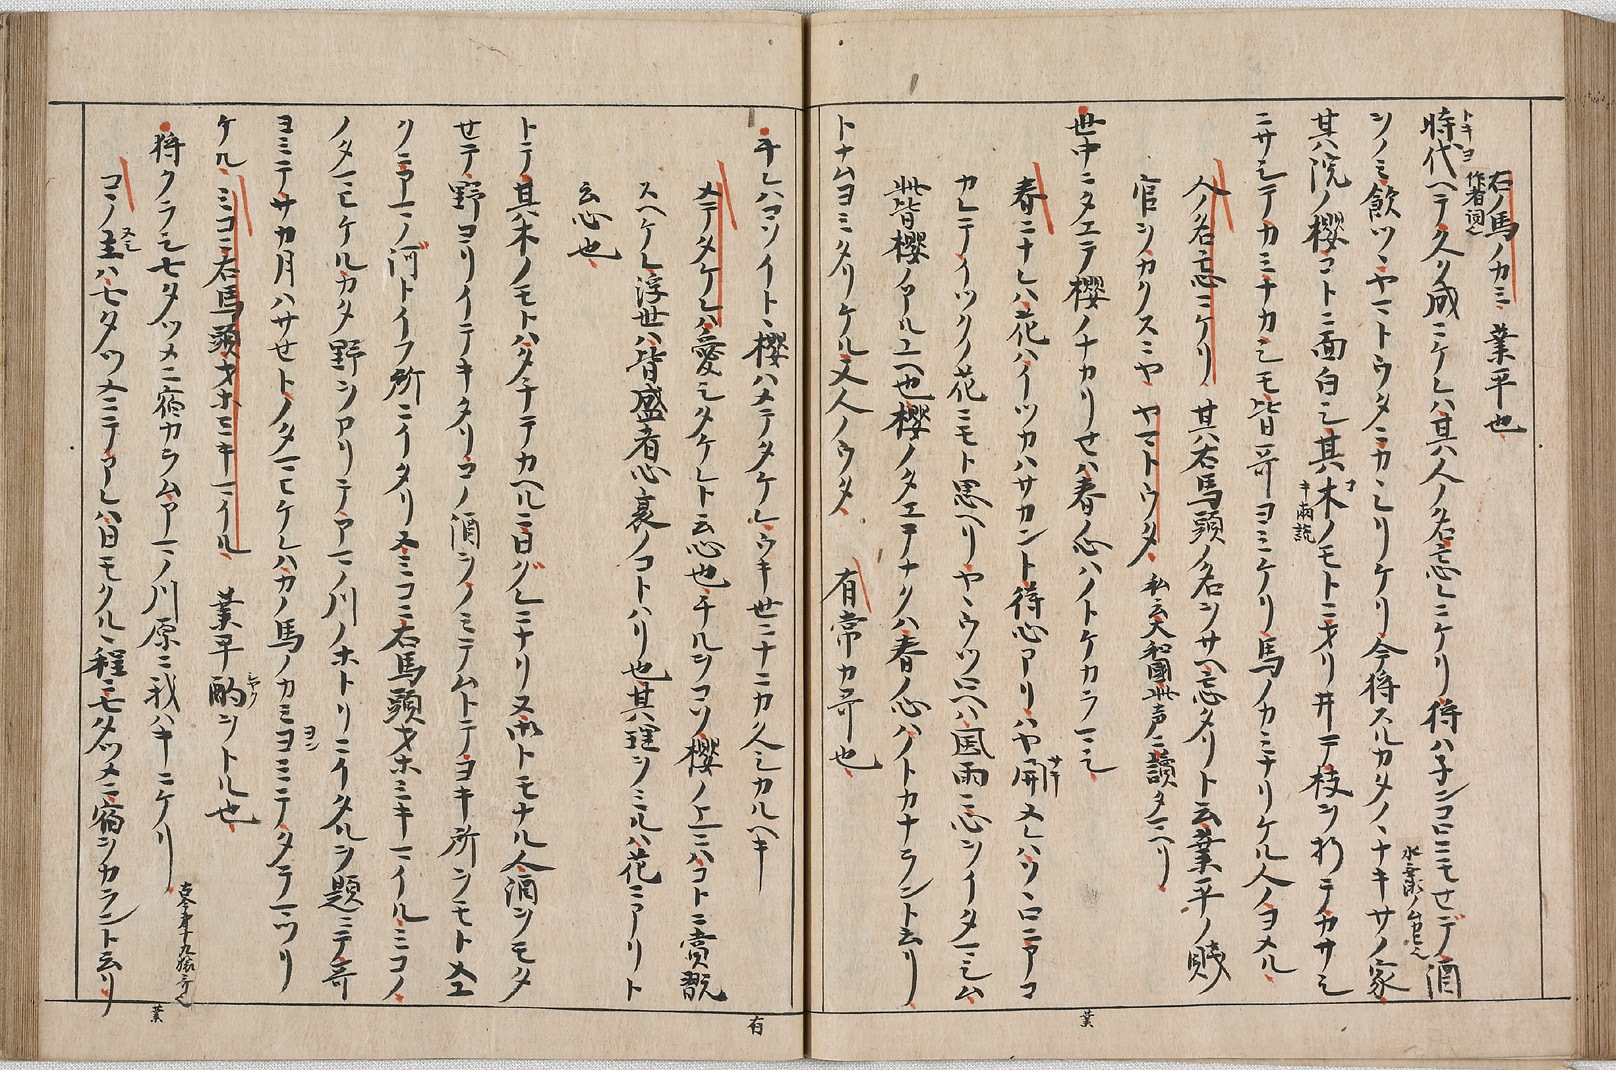 右ノ馬ノカミ 業平也
作者詞也
時代ヘテ久ク成ニケレハ其人ノ名忘レニケリ狩ハ子ンコロニモせデ酒
トキヨ
ンノミ飲ツヽヤマトウタニカヽレリケリ今狩スルカタノヽナキサノ家
其ノ院ノ櫻コトニ面白シ其木ノモトニオリ井テ枝ヲ折テカサシ
コ
キ兩説
ニサシテカミナカシモ皆哥ヨミケリ馬ノカミナリケル人ノヨメル
人ノ名忘ニケリ 其ハ右馬頭ノ名ンサヘ忘タリト云業平ノ賤
官ンカクスニヤ ヤマトウタ 私云大和國此声ニ讀タマヘリ
世中ニタエテ櫻ノナカリせハ春ノ心ハノトケカラマシ
春ニナレハ花ハイツカハサカント待心アリハヤ開ヌレハソロニアコ
サキ
カレテイツクノ花ミモト思ヘリヤヽウツロヘハ風雨ニ心ンイタマシム
此皆櫻ノアル上ヘ也櫻ノタエテナクハ春ノ心ハノトカナラント云リ
トナムヨミタリケル又人ノウタ 有常カ哥也
業
チレハコソイトヽ櫻ハメテタケレウキ世ニナニカ久シカルヘキ
メテタケレハ愛シタケレト云心也チルンコソ櫻ノ上ニハコトニ賞翫
スヘケレ浮世ハ皆盛者必衰ノコトハリ也其理ンミルハ花ニアリト
云心也
トテ其木ノモトハタチテカヘルニ日グレニナリヌ御トモナル人酒ンモタ
せテ野ヨリイテキタリコノ酒ンノミテムトテヨキ所ンモトメ
クニアマノ河トイフ所ニイタリヌミコニ右馬頭オホミキマイルミコノ
ノタマヒケルカタ野ンカリテアマノ川ノホトリニイタルン題ニテ哥
ヨミテサカ月ハサせトノタマヒケレハカノ馬ノカミヨミテタテマツリ
ケル ミコニ右馬頭オホミキマイル 業平酌ントル也
シヤク
狩クラシ七夕ツメニ宿カラムアマノ川原ニ我ハキニケリ
コノ里ハ七夕ツメニテアレハ日モクルヽ程ニ七夕ツメニ宿ンカラント云リ
有
業